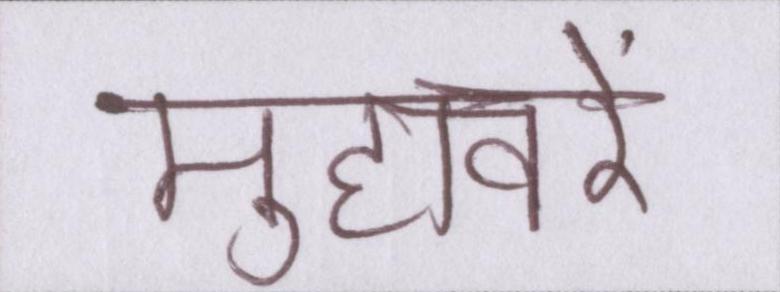 मुहावरें